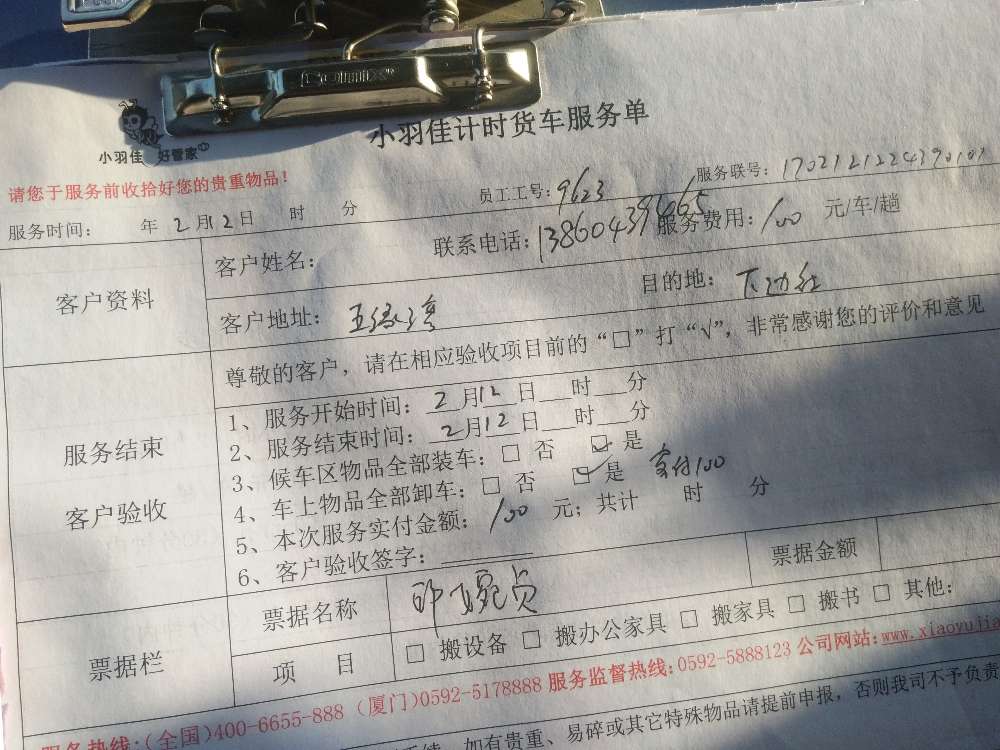 COMIX
小羽佳计时货车服务单
小羽佳 好管家
请您于服务前收拾好您的贵重物品！
员工工号：9623 服务联号：170212122439010
服务时间： 年 2月12日 时 分
服务费用：100 元/车/趟
客户资料
客户姓名： 联系电话：13860439665
客户地址：五缘湾 目的地：下边社
尊敬的客户，请在相应验收项目前的“□”打“√”，非常感谢您的评价和意见
服务结束
客户验收
1、服务开始时间：2月12日 时 分
2、服务结束时间：2月12日 时 分
3、候车区物品全部装车：□ 否 ☑ 是
4、车上物品全部卸车：□ 否 ☑ 是 实付100
5、本次服务实付金额：100 元；共计 时 分
6、客户验收签字：
票据栏
票据名称 票据金额
项 目 □ 搬设备 □ 搬办公家具 □ 搬家具 □ 搬书 □ 其他：
服务热线：(全国)400-6655-888 (厦门)0592-5178888 服务监督热线：0592-5888123 公司网站：www.xiaoyujia
如有贵重、易碎或其它特殊物品请提前申报，否则我司不予负责